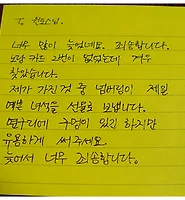 너무 많이 늦었네요. 죄송합니다.
보람 카드 2번이 없었는데 겨우
찾았습니다.
제가 가진 것 중 넘버링이 제일
예쁜 녀석을 선물로 보냅니다.
연구리에 구멍이 있긴 하지만
유용하게 써주세요.
늦어서 너무 죄송합니다.